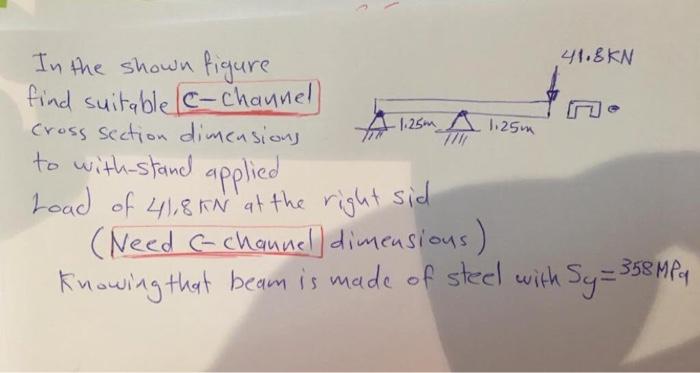 In the shown figure
find suitable C-channel
cross section dimensions
to with-stand applied
Load of 41.8 KN at the right sid
(Need C-channel dimensions)
Knowing that beam is made of steel with Sy=358MPa
41.8KN
1.25m
1.25m